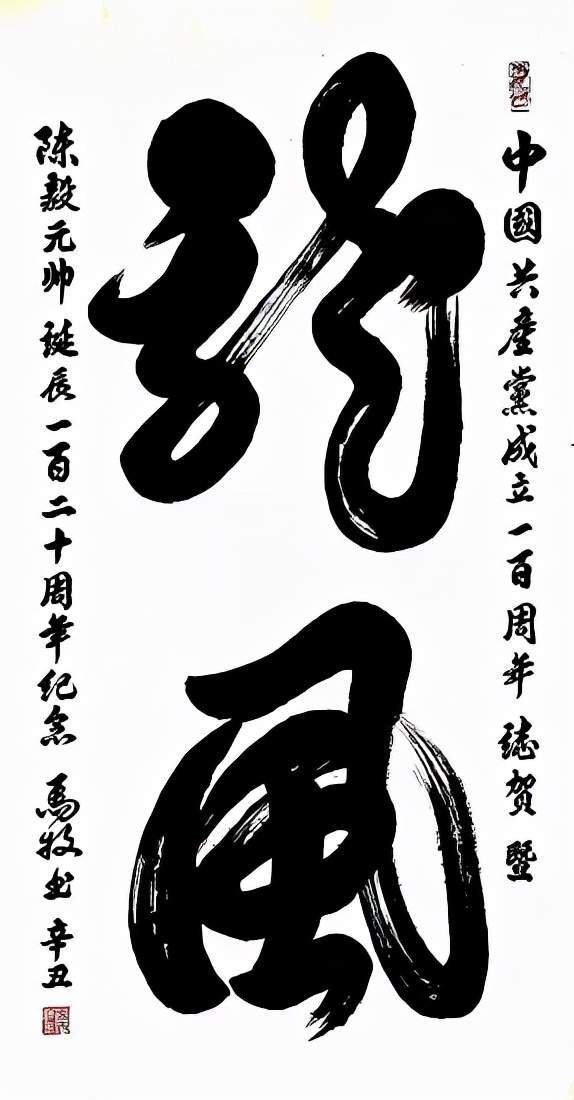 中國共産黨成立一百周年 誌贺 暨
龍風
陈毅元帅 誕辰一百二十周年纪念 馬牧书 辛丑